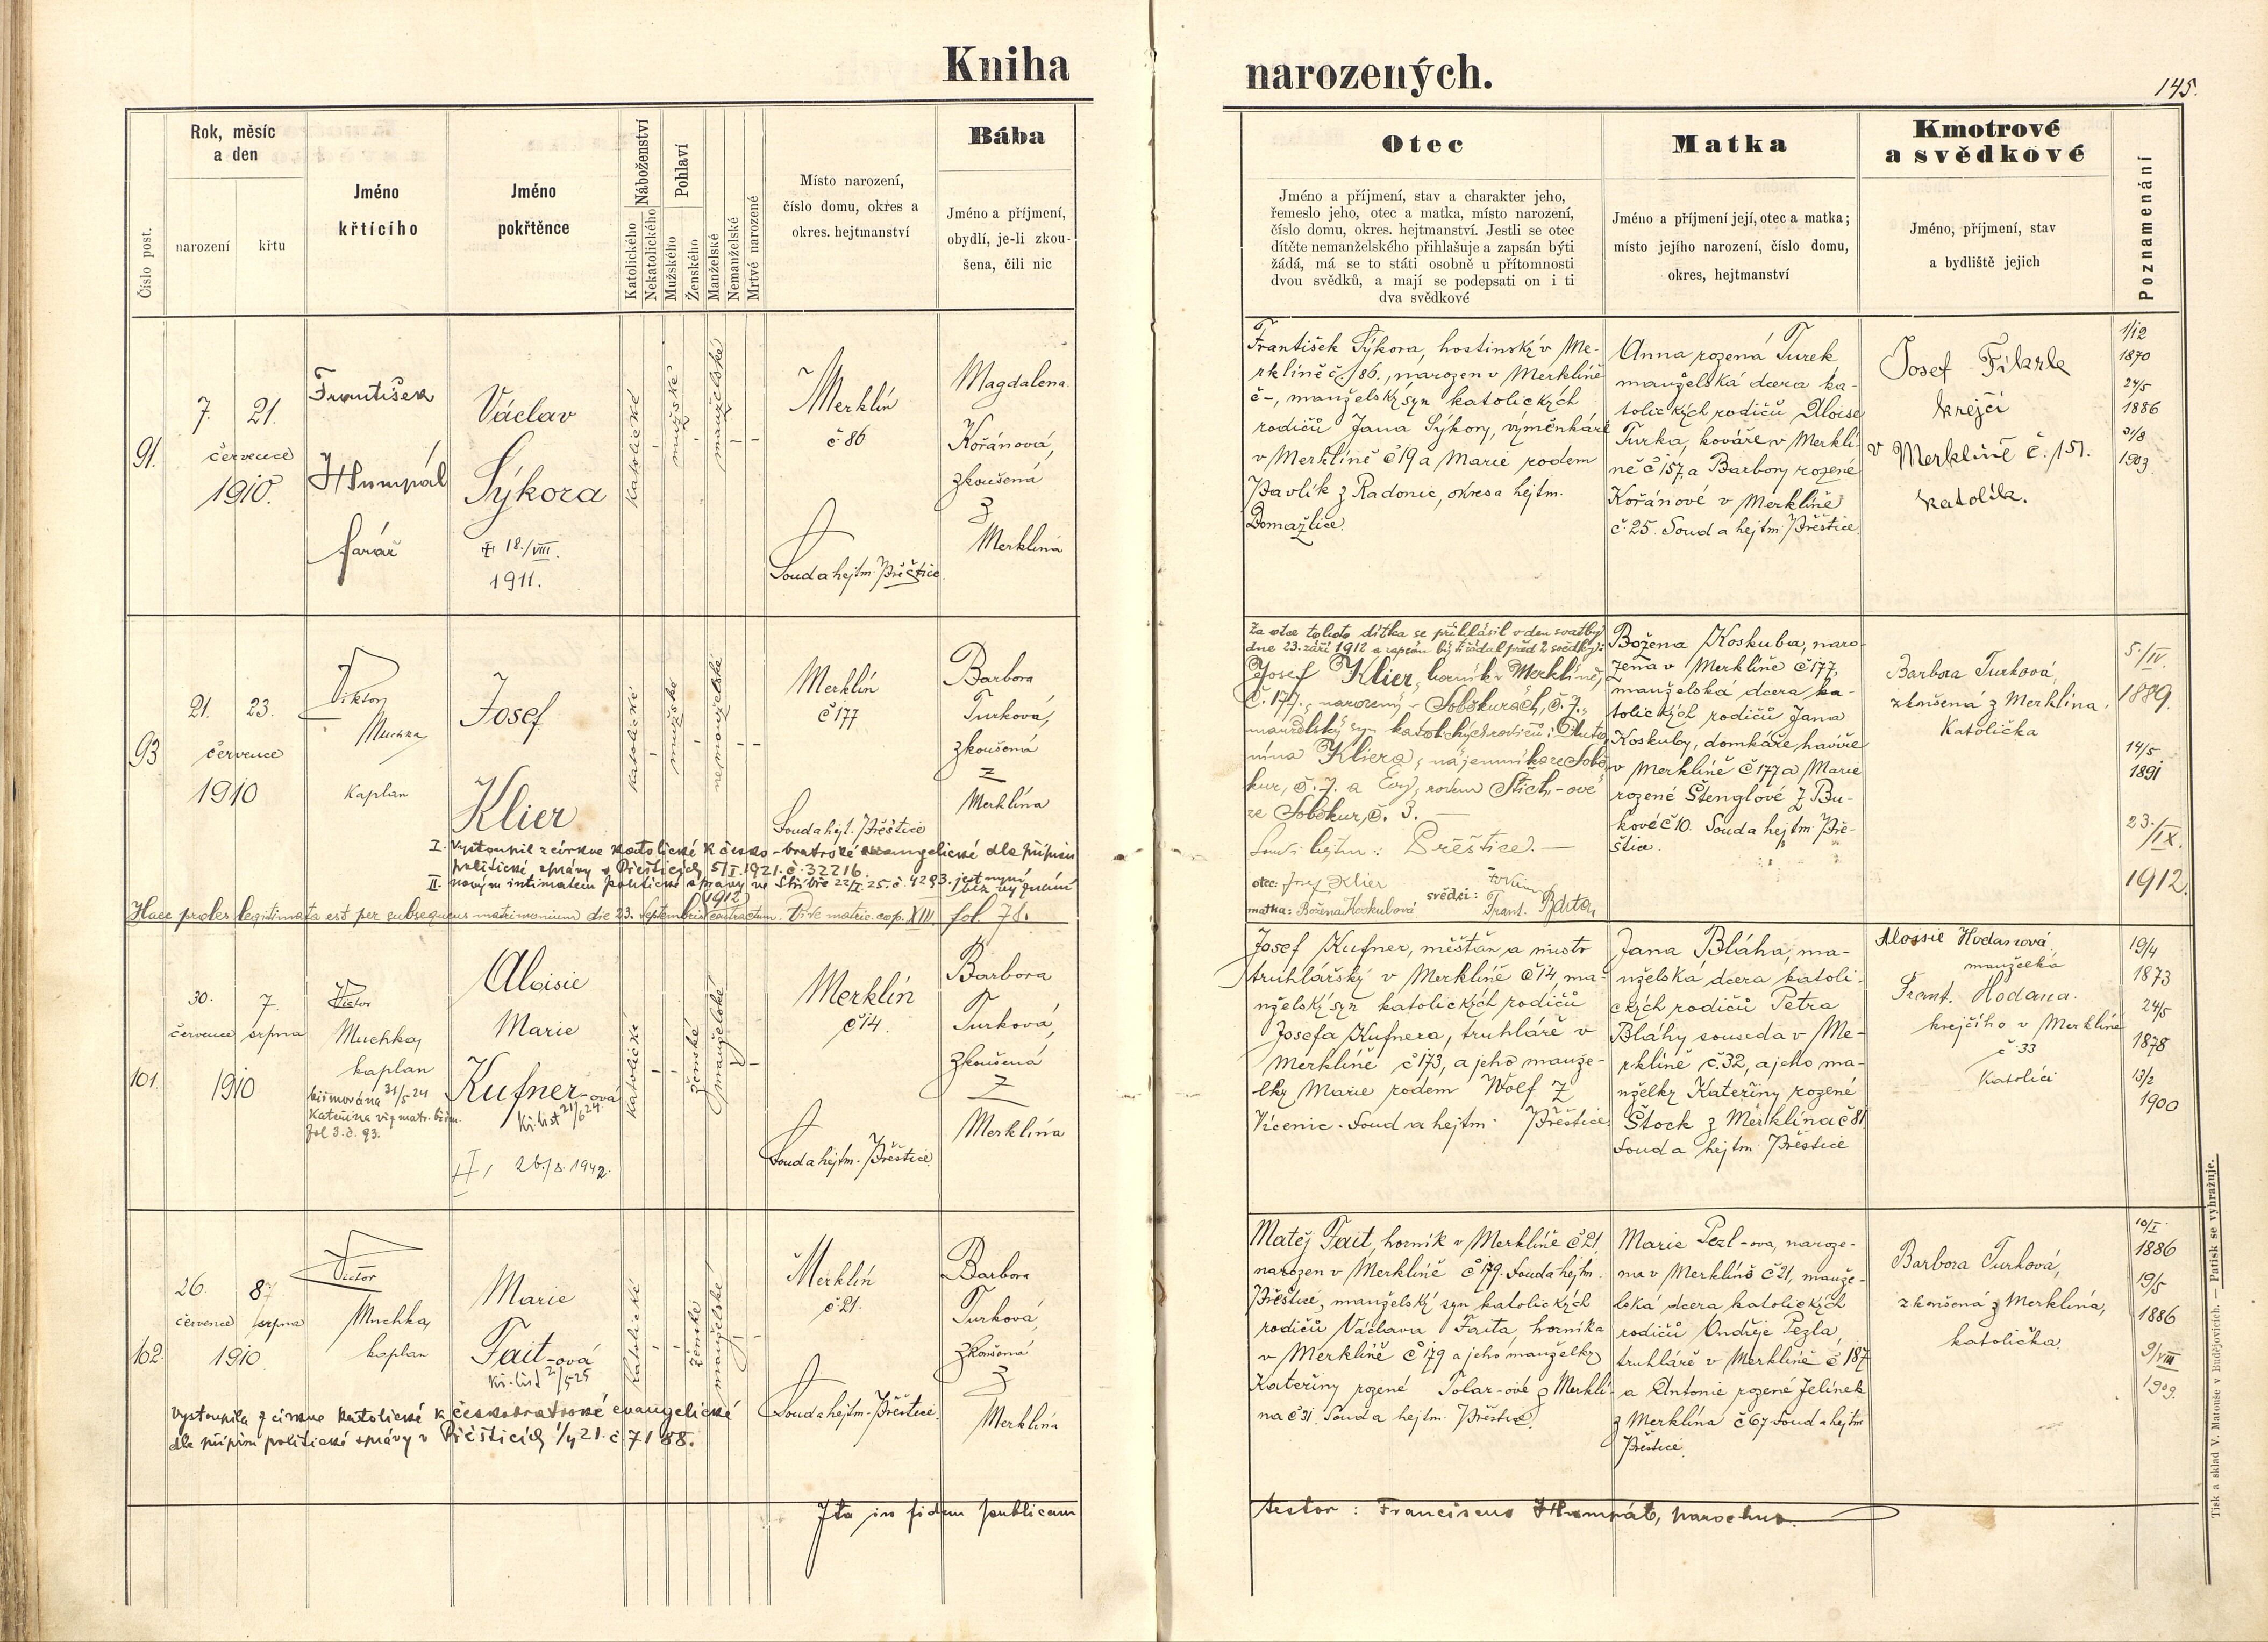 Kniha
narozených.
145.
Rok, měsíc
a den
narození
křtu
Číslo post.
Jméno
křtícího
Jméno
pokřtěnce
Náboženství
Katolického
Nekatolického
Pohlaví
Mužského
Ženského
Manželské
Nemanželské
Mrtvé narozené
Místo narození,
číslo domu, okres a
okres. hejtmanství
Bába
Jméno a příjmení,
obydlí, je-li zkou-
šena, čili nic
Otec
Jméno a příjmení, stav a charakter jeho,
řemeslo jeho, otec a matka, místo narození,
číslo domu, okres. hejtmanství. Jestli se otec
dítěte nemanželského přihlašuje a zapsán býti
žádá, má se to státi osobně u přítomnosti
dvou svědků, a mají se podepsati on i ti
dva svědkové
Matka
Jméno a příjmení její, otec a matka;
místo jejího narození, číslo domu,
okres, hejtmanství
Kmotrové
a svědkové
Jméno, příjmení, stav
a bydliště jejich
Poznamenání
91.
7. 21.
července
1910.
František
Humpál
farář
Václav
Sýkora
18./VIII.
1911.
katolické
mužské
manželské
Merklín
č 86
Soud a hejtm. Přeštice
Magdalena
Kořánová,
zkoušená
z
Merklína
František Sýkora, hostinský v Me-
rklíně č. 86., narozen v Merklíně
č -, manželský syn katolických
rodičů Jana Sýkory, výměnkáře
v Merklíně č 19 a Marie rodem
Pavlík z Radonic, okres a hejtm.
Domažlice.
Anna rozená Turek
manželská dcera ka-
tolických rodičů Aloise
Turka, kováře v Merklí-
ně č 157, a Barbory rozené
Kořánové v Merklíně
č. 25. Soud a hejtm. Přeštice
Josef Fikrle
krejčí
v Merklíně č. 151.
katolík.
1/12
1870
24/5
1886
31/8
1903
93
21. 23.
července
1910
Viktor
Muchka
kaplan
Josef
Klier
katolické
mužské
nemanželské
Merklín
č 177
Soud a hejt. Přeštice
Barbora
Turková,
zkoušená
z
Merklína
I. Vystoupil z církve katolické k česko-bratrské evangelické dle přípisu
politické správy v Přešticích 5/I. 1921. č. 32216.
II. novým intimatem politické správy ve Stříbře 22/I. 25. č. 4293. jest nyní
bez vyznání
(1912)
Haec proles legitimata est per subsequens matrimonium die 23. Septembris contractum. Vide matric. cop. XIII fol. 78.
Za otce tohoto dítka se přihlásil v den svatby
dne 23. září 1912 a zapsán býti žádal před 2 svědky:
Josef Klier, horník v Merklíně,
č. 177., narozený v Soběkurách, č. 7.,
manželský syn katolických rodičů: Anto-
nína Kliera, nájemníka ze Sobě-
kur, č. 7. a Evy, rodem Stich-ové
ze Soběkur, č. 3. —
Soud i hejtm.: Přeštice. —
otec: Josef Klier
matka: Božena Koskubová
svědci:
Frant. Bárta
Božena Koskuba, naro-
zena v Merklíně č 177,
manželská dcera ka-
tolických rodičů Jana
Koskuby, domkáře havíře
v Merklíně č 177 a Marie
rozené Štenglové z Bu-
kové č 10. Soud a hejtm. Pře-
štice.
Barbora Turková,
zkoušená z Merklína,
Katolička
5./IV.
1889.
14/5
1891
23./IX.
1912.
101.
30. 7.
července srpna
1910
Victor
Muchka,
kaplan
biřmována 31/5 24
Kateřina viz matr. biřm.
fol. 3. č. 93.
Aloisie
Marie
Kufner-ová
Kř. list 21/6 24
26./8. 1942.
katolické
ženské
manželské
Merklín
č 14.
Soud a hejtm. Přeštice
Barbora
Turková,
zkoušená
z
Merklína
Josef Kufner, měšťan a mistr
truhlářský v Merklíně č 14, ma-
nželský syn katolických rodičů
Josefa Kufnera, truhláře v
Merklíně č 173, a jeho manže-
lky Marie rodem Wolf z
Vícenic. Soud a hejtm. Přeštice
Jana Bláha, ma-
nželská dcera katoli-
ckých rodičů Petra
Bláhy souseda v Me-
rklíně č. 32, a jeho ma-
nželky Kateřiny rozené
Štock z Merklína č 81
Soud a hejtm. Přeštice
Aloisie Hodanová
manželka
Frant. Hodana.
krejčího v Merklíně
č 33
Katolíci
19/4
1873
24/5
1878
13/2
1900
102.
26. 8
července srpna
1910
Victor
Muchka,
kaplan
Marie
Fait-ová
kř. list 2/5 25
katolické
ženské
manželské
Merklín
č. 21.
Soud a hejtm. Přeštice.
Barbora
Turková,
zkoušená
z
Merklína
Vystoupila z církve katolické k českobratrské evangelické
dle přípisu politické správy v Přešticích 1/4 21. č. 7188.
Matěj Fait, horník v Merklíně č 21,
narozen v Merklíně č 179. Soud a hejtm.
Přeštice, manželský syn katolických
rodičů Václava Faita, horníka
v Merklíně č 179 a jeho manželky
Kateřiny rozené Tolar-ové z Merklí-
na č 31. Soud a hejtm. Přeštice.
Marie Pezl-ova, naroze-
na v Merklíně č 21, manže-
lská dcera katolických
rodičů Ondřeje Pezla,
truhláře v Merklíně č 187
a Antonie rozené Jelínek
z Merklína č 67. Soud a hejtm
Přeštice.
Barbora Turková,
zkoušená z Merklína,
katolička.
10/I.
1886
19/5
1886
9/VIII
1909.
Ita in fidem publicam
testor: Franciscus Humpál, parochus.
Tisk a sklad V. Matouše v Budějovicích. — Patisk se vyhražuje.